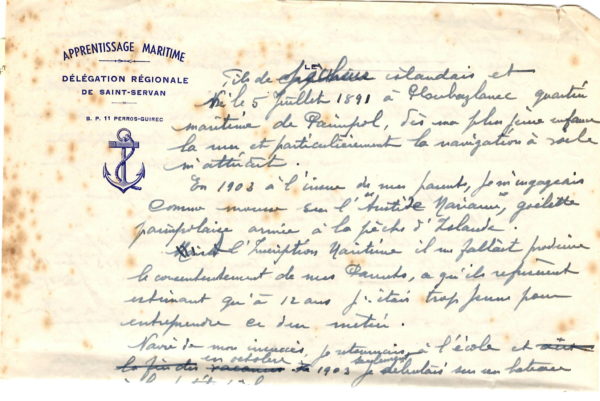 APPRENTISSAGE MARITIME
DÉLÉGATION RÉGIONALE
DE SAINT-SERVAN
B. P. 11 PERROS-GUIREC
LE
Fils de pêcheur islandais et
Né le 5 Juillet 1891 à Ploubazlanec quartier
maritime de Paimpol, dès ma plus jeune enfance
la mer et particulièrement la navigation à voile
m'attirait.
En 1903 à l'insu de mes parents, je m'engageais
comme mousse sur l'" Marianne", goëlette
paimpolaise armée à la pêche d'Islande.
à l'Inscription Maritime il me fallait produire
le consentement de mes Parents, ce qu'ils refusèrent
estimant qu'à 12 ans j'étais trop jeune pour
entreprendre ce dur métier.
Navré de mon insuccès, je retournais à l'école et
la fin des vacances en octobre 1903 je débutais sur un bateau